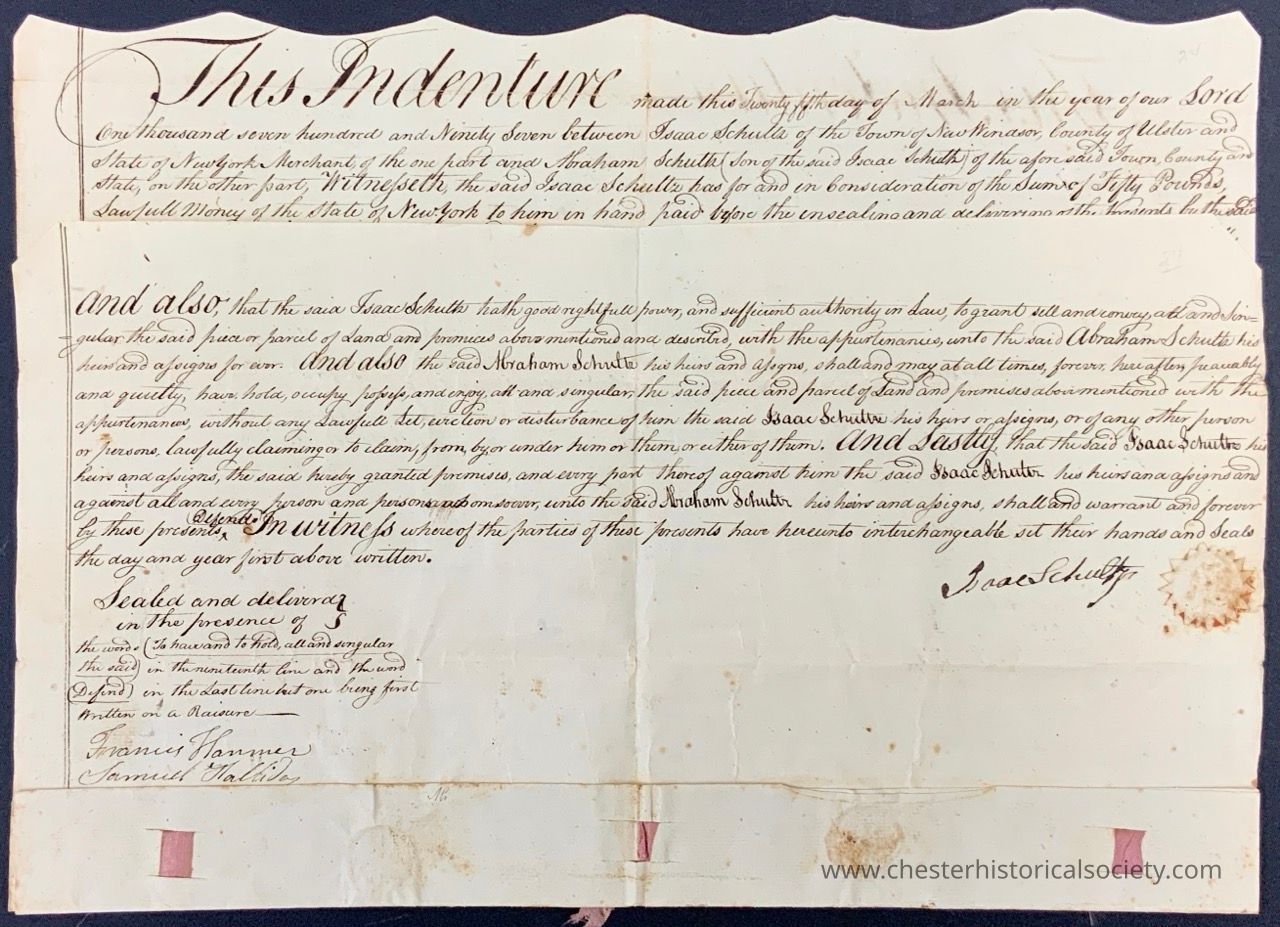 This Indenture made this Twenty fifth day of March in the year of our Lord
One thousand seven hundred and Ninety Seven between Isaac Schultz of the Town of New Windsor, County of Ulster and
State of New York Merchant, of the one part and Abraham Schultz (son of the said Isaac Schultz) of the afore said Town, County and
State, on the other part, Witnesseth, the said Isaac Schultz has for and in Consideration of the Sum of Fifty Pounds,
Lawfull Money of the State of New York to him in hand paid before the insealing and delivering of these Presents by the said
And also, that the said Isaac Schultz hath good rightfull power, and sufficient authority in Law, to grant sell and convey, all and Sin=
=gular the said piece or parcel of Land and premices above mentioned and described, with the appurtinances, unto the said Abraham Schultz his
heirs and assigns for ever. And also the said Abraham Schultz his heirs and assigns, shall and may at all times, forever, here after, peaceably
and quietly, have, hold, occupy, possess, and enjoy, all and singular, the said piece and parcel of Land and premises above mentioned with the
appurtenances, without any Lawfull Let, eviction or disturbance of him the said Isaac Schultz his heirs or assigns, or of any other person
or persons, lawfully claiming or to claim, from, by, or under him or them, or either of them. And Lastly, that the said Isaac Schultz his
heirs and assigns, the said hereby granted premises, and every part thereof against him the said Isaac Schultz his heirs and assigns and
against all and every person and persons whomsoever, unto the said Abraham Schultz his heirs and assigns, shall and warrant and forever
by these presents, Defend In witness whereof the parties of these presents have hereunto interchangeable set their hands and Seals
the day and year first above written.
Isaac Schultz
Sealed and deliverd
in the presence of
the words (To have and to hold, all and singular
the said) in the nineteenth line and the word
(Defend) in the Last line but one being first
Written on a Raisure
Francis Hanmer
Samuel Halliday
www.chesterhistoricalsociety.com